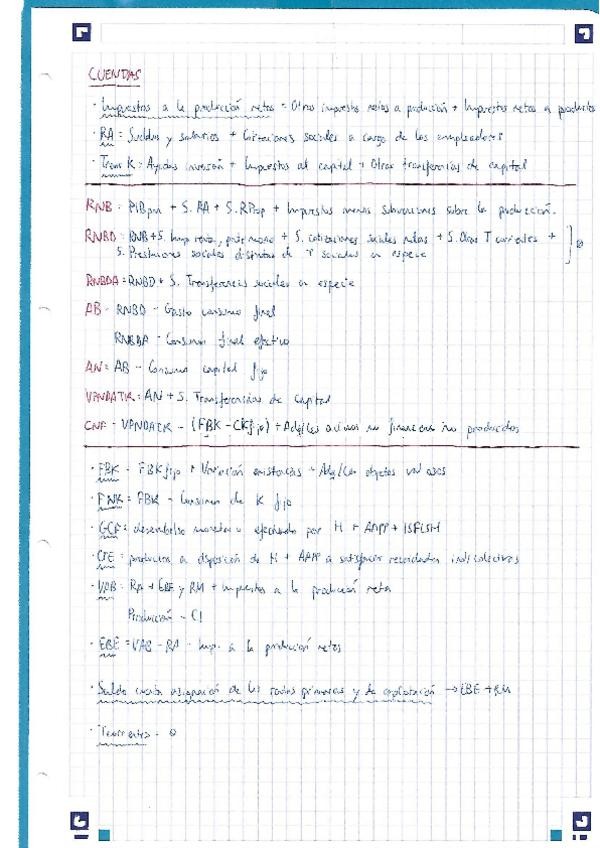 CUENTAS
· Impuestos a la producción netos = Otros impuestos netos a producción + Impuestos netos a productos
· RA = Sueldos y salarios + Cotizaciones sociales a cargo de los empleadores
· Trans K = Ayudas inversión + Impuestos al capital + Otras transferencias de capital
RNB = PIBpm + S. RA + S. RProp + Impuestos menos subvenciones sobre la producción.
RNBD = RNB + S. Imp renta, patrimonio + S. cotizaciones sociales netas + S. Otras T corrientes +
S. Prestaciones sociales distintas de T sociales en especie
RNBDA = RNBD + S. Transferencias sociales en especie
AB = RNBD - Gasto consumo final
RNBDA - Consumo final efectivo
AN = AB - Consumo capital fijo
VPNDATK = AN + S. Transferencias de capital
CNF = VPNDATK - (FBK - CKfijo) - Adq/Ces activos no financieros no producidos
· FBK = FBKfijo + Variación existencias + Adq/Ces objetos valiosos
· FNK = FBK - Consumo de K fijo
· GCF = desembolso monetario efectuado por H + AAPP + ISFLSH
· CFE = productos a disposición de H + AAPP a satisfacer necesidades ind/colectivas
· VAB = RA + EBE y RM + impuestos a la producción netos
Producción - CI
· EBE = VAB - RA - Imp. a la producción netos
· Saldo cuenta asignación de las rentas primarias y de explotación → EBE + RM